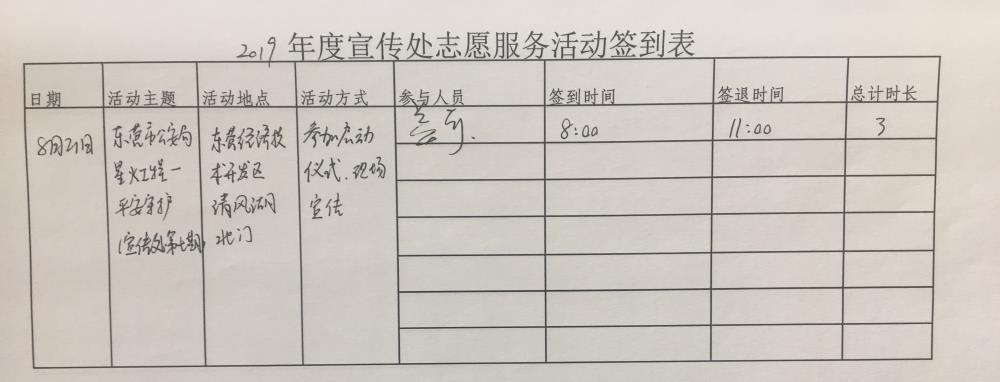 2019 年度宣传处志愿服务活动签到表
日期 活动主题 活动地点 活动方式 参与人员 签到时间 签退时间 总计时长
8月21日 东营市公安局 东营经济技 参加启动 8:00 11:00 3
星火工程一 术开发区 仪式、现场
平安守护 清风湖 宣传
(宣传处第七期) 北门